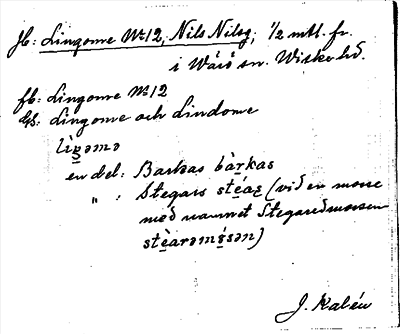 Jb: Lingome No 12, Nils Nilsg, 1/2 mtl. fr.
i Värö sn. Viske hd.
fb: Lingome No 12
Us: Lingome och Lindome
lìŋəmə
en del: Barkas bàrkas
" : Stegars stèaʂ (vid en mosse
med namnet Stegaredmossen
stèarəmósən)
J. Kalén